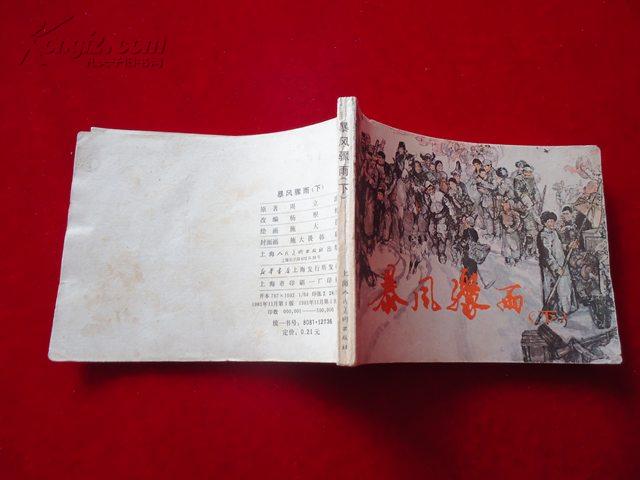 Kongfz.com
暴风骤雨(下)
原著 周立
改编 杨根
绘画 施大
封面画 施大畏 韩
上海人民美术出版社出
新华书店上海发行所发
上海市印刷一厂印
开本 787×1092 1/64 印张 2
1981年11月第1版 1981年11月第1
印数 000,001—500,000
统一书号：8081·12736
定价：0.21元
暴风骤雨(下)
上海人民美术出版社
暴风骤雨
(下)